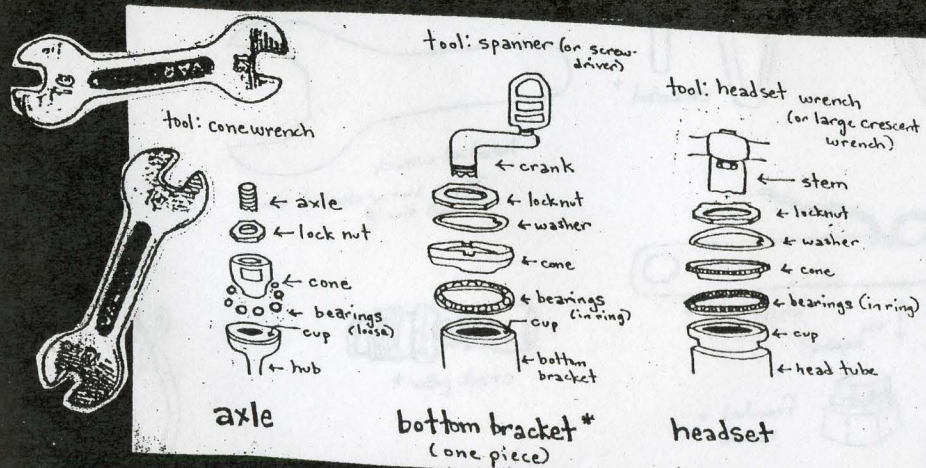 tool: conewrench
axle
lock nut
cone
bearings
(loose)
cup
hub
axle
tool: spanner (or screw-
driver)
crank
locknut
washer
cone
bearings
(in ring)
cup
bottom
bracket
bottom bracket*
(one piece)
tool: headset wrench
(or large crescent
wrench)
stem
locknut
washer
cone
bearings (in ring)
cup
head tube
headset